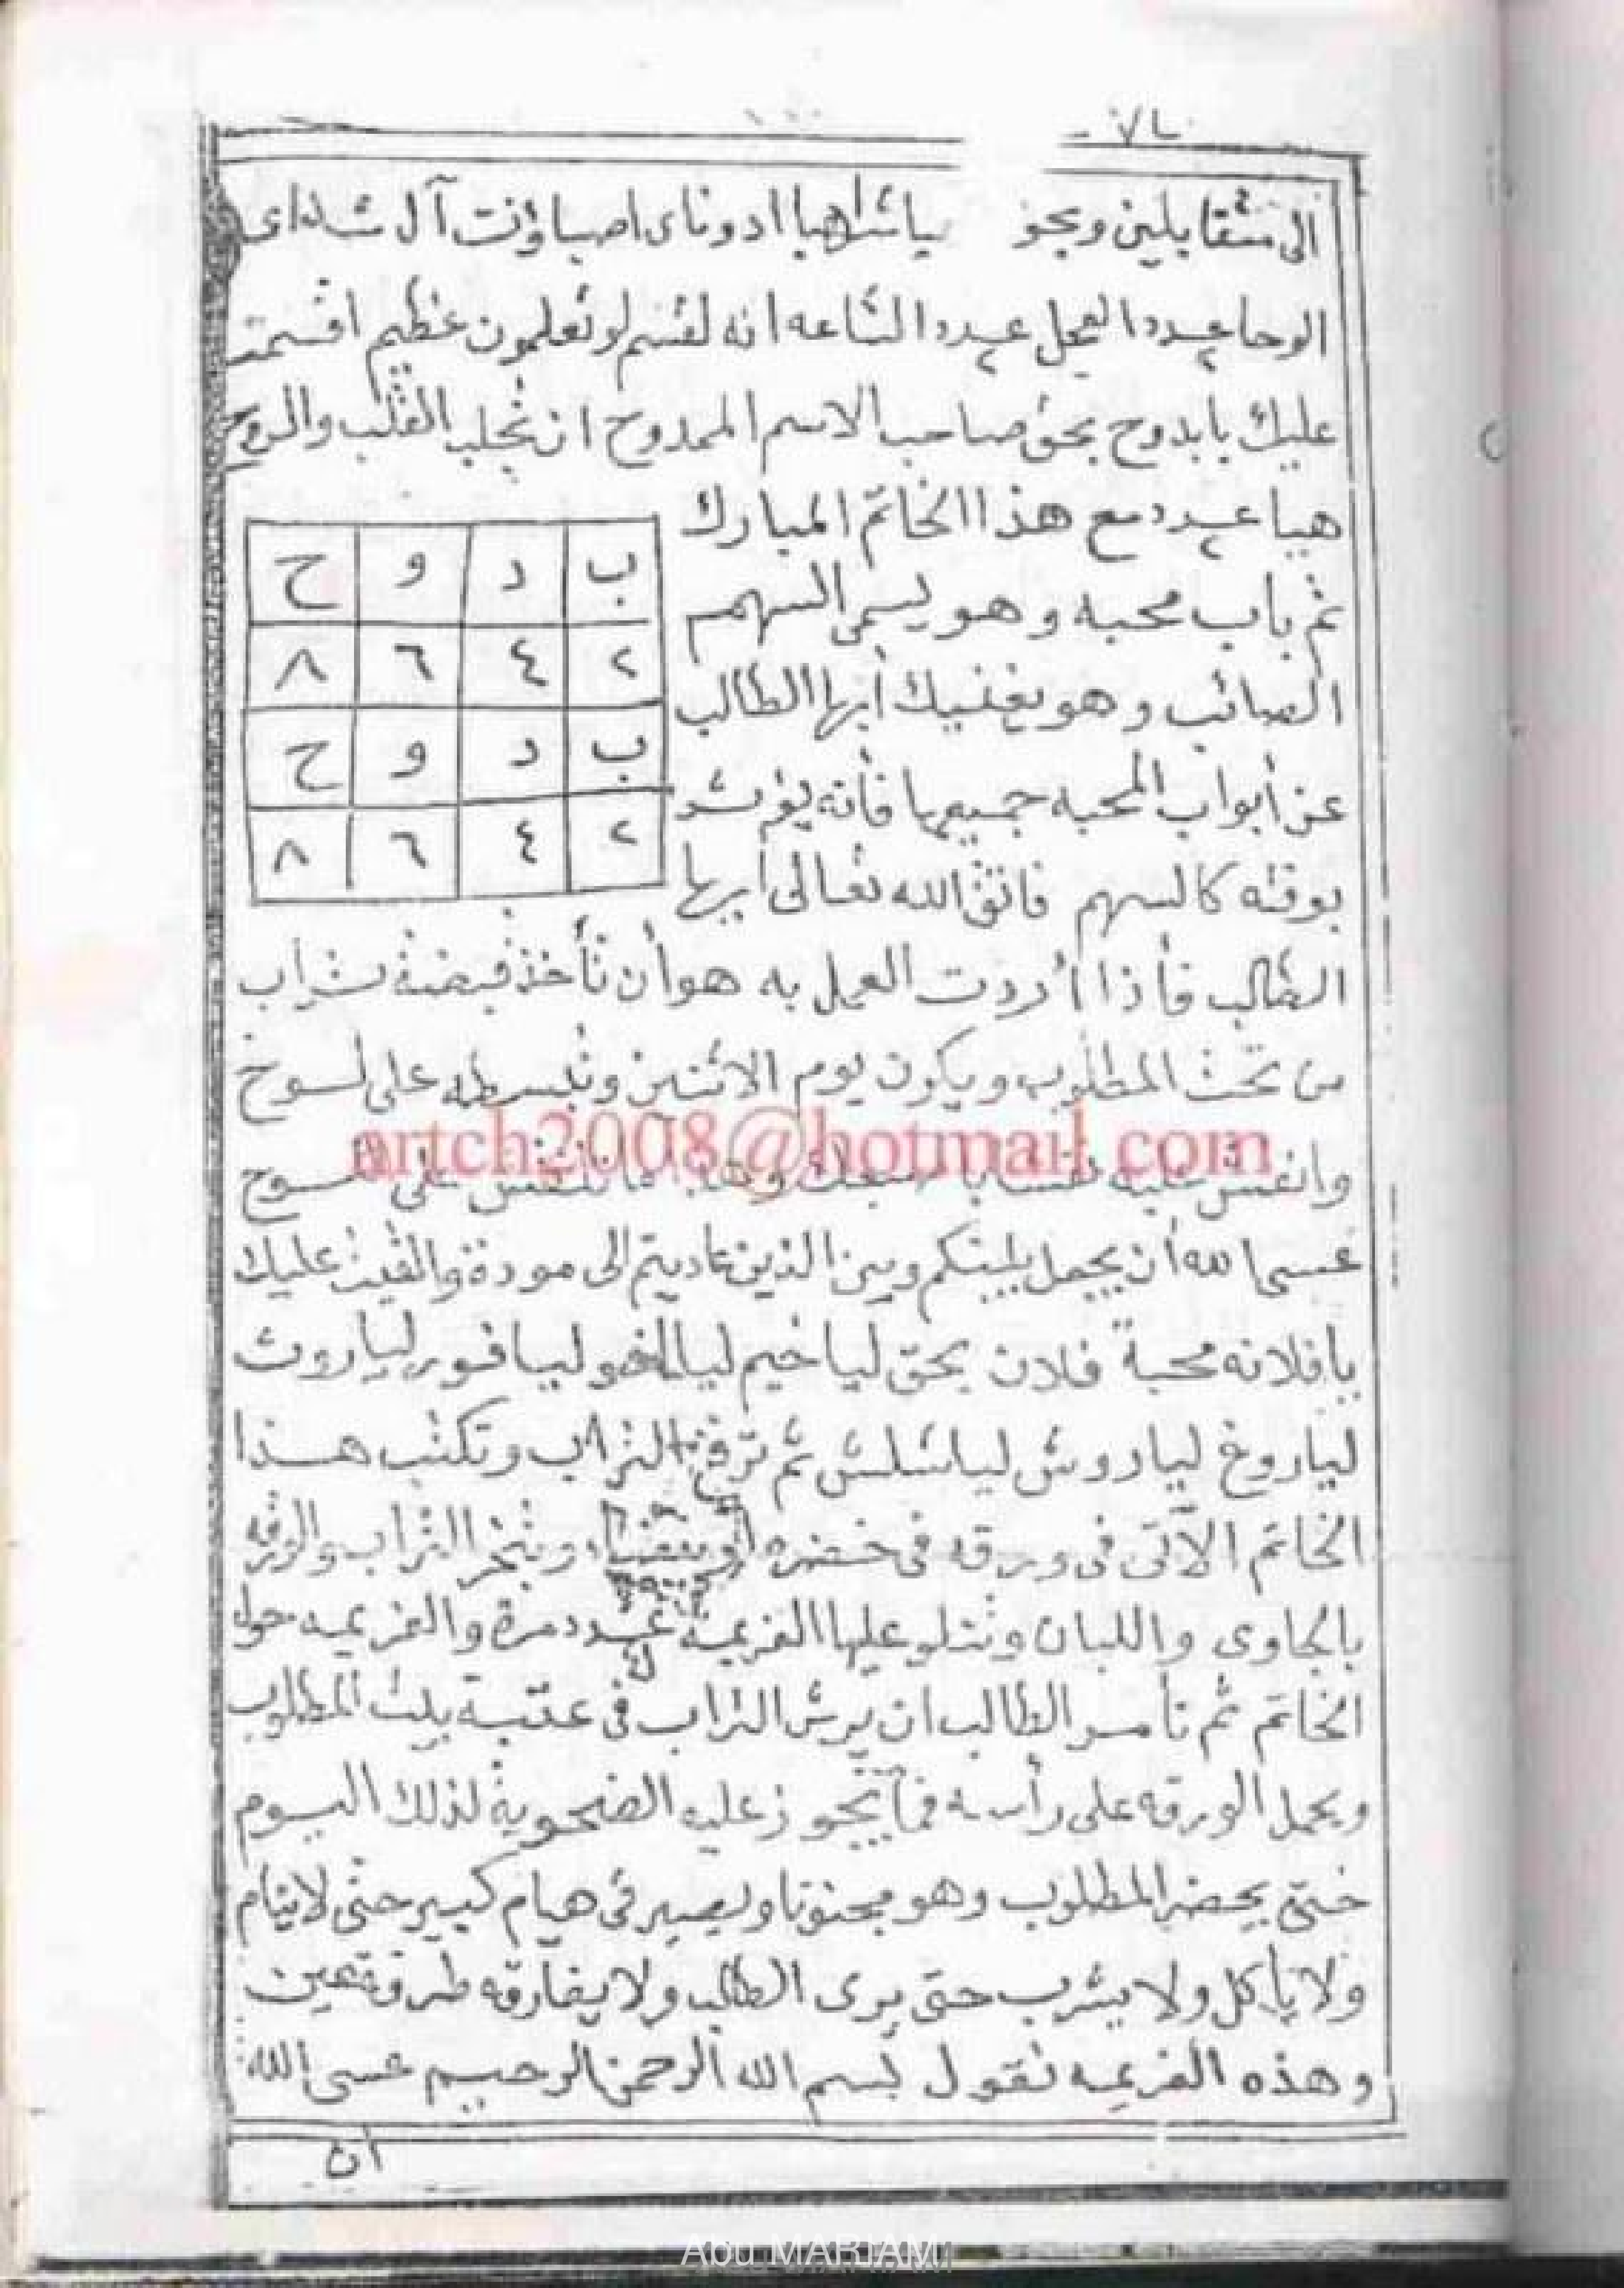 الى متقابلين وبحق ياشراهيا ادوناى اصباؤت آل شداى
الوحا عدد العجل عدد الساعه انه لقسم لو تعلمون عظيم اقسمت
عليك يابدوح بحق صاحب الاسم الممدوح ان تجلب القلب والروح
هيا عدد مع هذا الخاتم المبارك
ب د و ح
٢ ٤ ٦ ٨
ب د و ح
٢ ٤ ٦ ٨
تم باب محبه وهو يسمى السهم
الصائب وهو يغنيك أيها الطالب
عن أبواب المحبه جميعها فأنه يؤثر
بوقته كالسهم فاتق الله تعالى أيها
الطالب فأذا أردت العمل به هو أن تأخذ قبضة تراب
من تحت المطلوب ويكون يوم الاثنين وتبسطه على لسوح
وانقش عليه نقشا على لسوح
عسى الله أن يجعل بينكم وبين الذين عاديتم الى مودة والقيت عليك
يافلانه محبة فلان بحق لياخيم لياللغو ليافور لياروث
لياروغ لياروش لياشلش ثم ترفع التراب وتكتب هذا
الخاتم الآتى فى ورقه فى خضره أو بيضاء وتبخر التراب والورقه
بالجاوى واللبان وتتلو عليها العزيمة عدد مرة والعزيمه حول
الخاتم ثم تأمر الطالب ان يرش التراب فى عتبة بيت المطلوب
ويحمل الورقه على رأسه فما تجوز عليه الضحوية لذلك اليوم
حتى يحضر المطلوب وهو مجنونا ويصير فى هيام كبير حتى لاينام
ولا يأكل ولا يشرب حتى يرى الطالب ولا يفارقه طرفة عين
وهذه العزيمه تقول بسم الله الرحمن الرحيم عسى الله
ان
artch2008@hotmail.com
Abu MARIAM